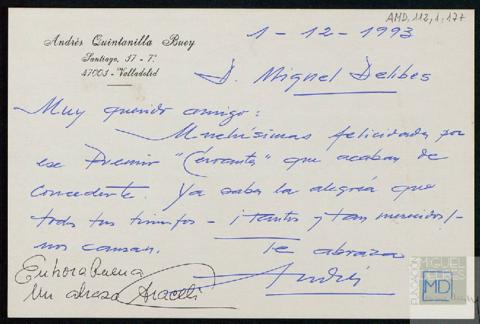 AMD, 112, 1, 177
Andrés Quintanilla Buey
Santiago, 57 - 7.º
47003 - Valladolid
1 - 12 - 1993
D. Miguel Delibes
Muy querido amigo:
Muchísimas felicidades por
ese Premio "Cervantes" que acaban de
concederte. Ya sabes la alegría que
todos tus triunfos - ¡tantos y tan merecidos! -
nos causan. Te abraza
Andrés
Enhorabuena
Un abrazo Araceli
FUNDACIÓN MIGUEL DELIBES
MD